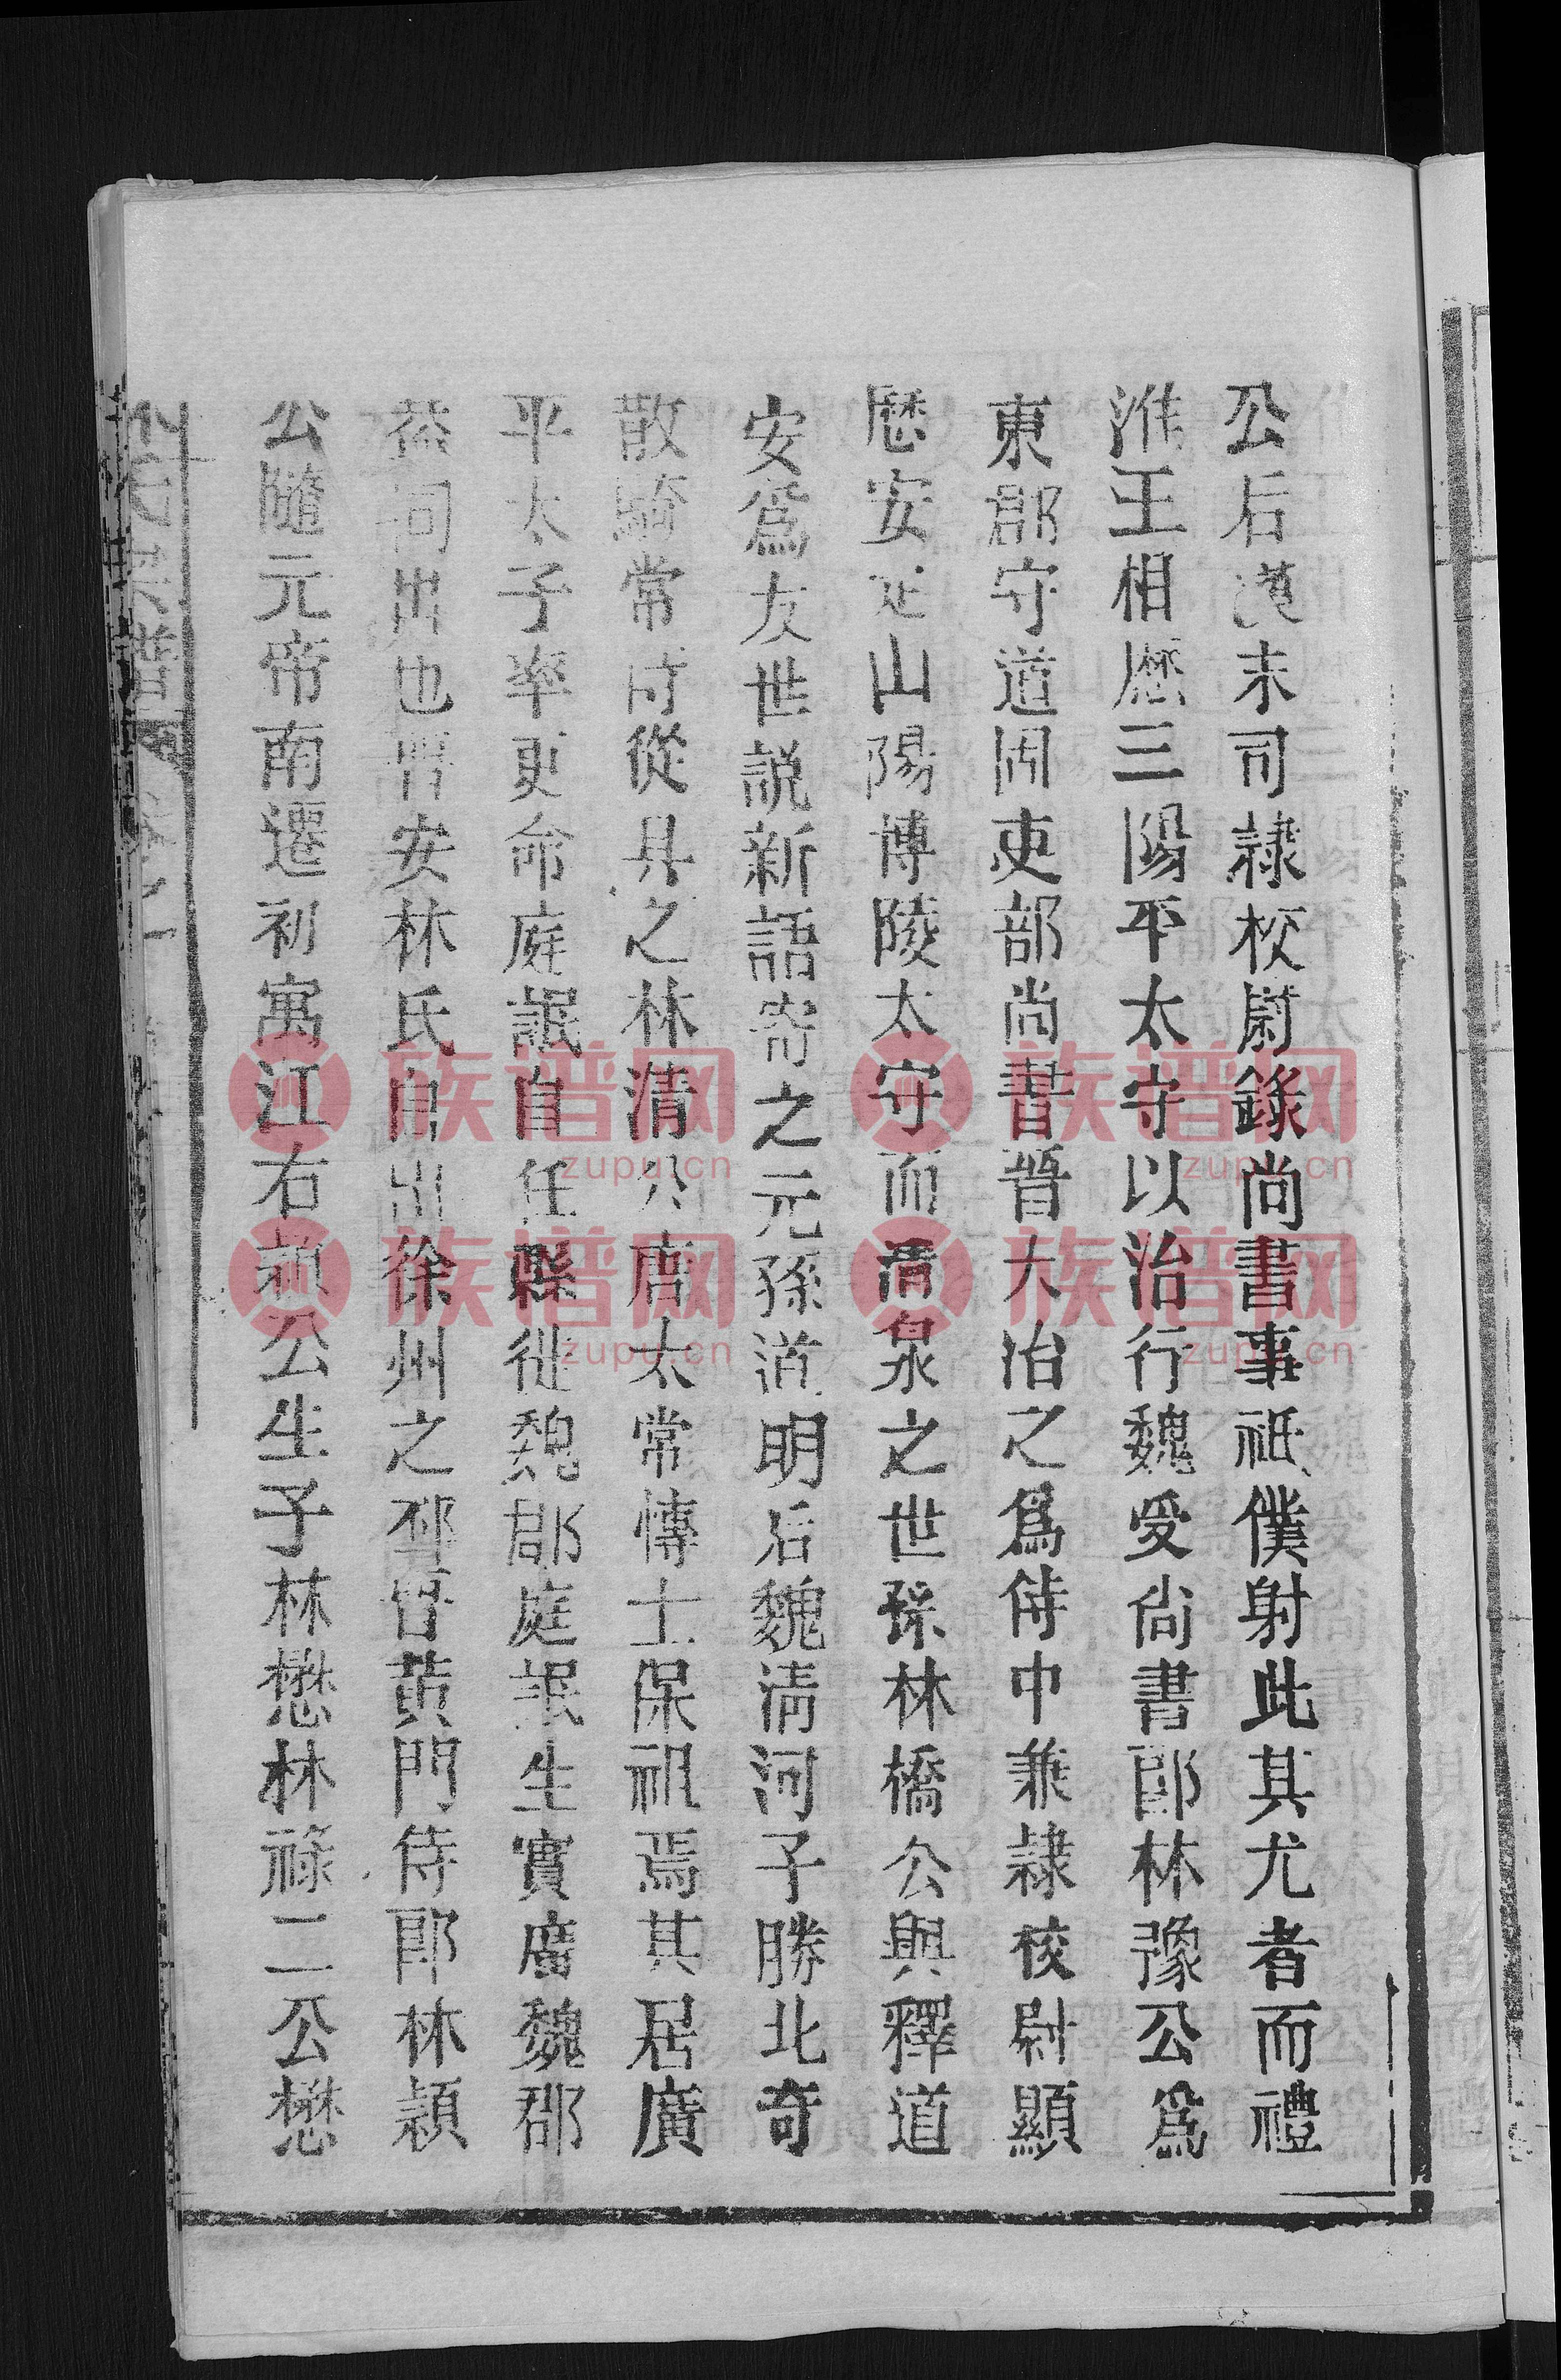 公后漢末司隷校尉錄尚書事祗僕射此其尤者而禮
淮王相歷三陽平太守以治行魏受尙書郎林豫公爲
東郡守道固吏部尚書晉大治之爲侍中兼隷校尉顯
歷安延山陽博陵太守而清泉之世孫林橋公與釋道
安爲友世說新語寄之元孫道明后魏淸河子勝北奇
散騎常侍從具之林清公唐太常慱士保祖焉其居廣
平太子率更命庭諁自任縣徙魏郡庭諁生實廣魏郡
同出也晉安林氏自出徐州之邳晉黃門侍郎林頴
公隨元帝南遷初寓江右頴公生子林懋林祿二公懋
氏族譜
族譜网
zupu.cn
族譜网
zupu.cn
族譜网
zupu.cn
族譜网
zupu.cn